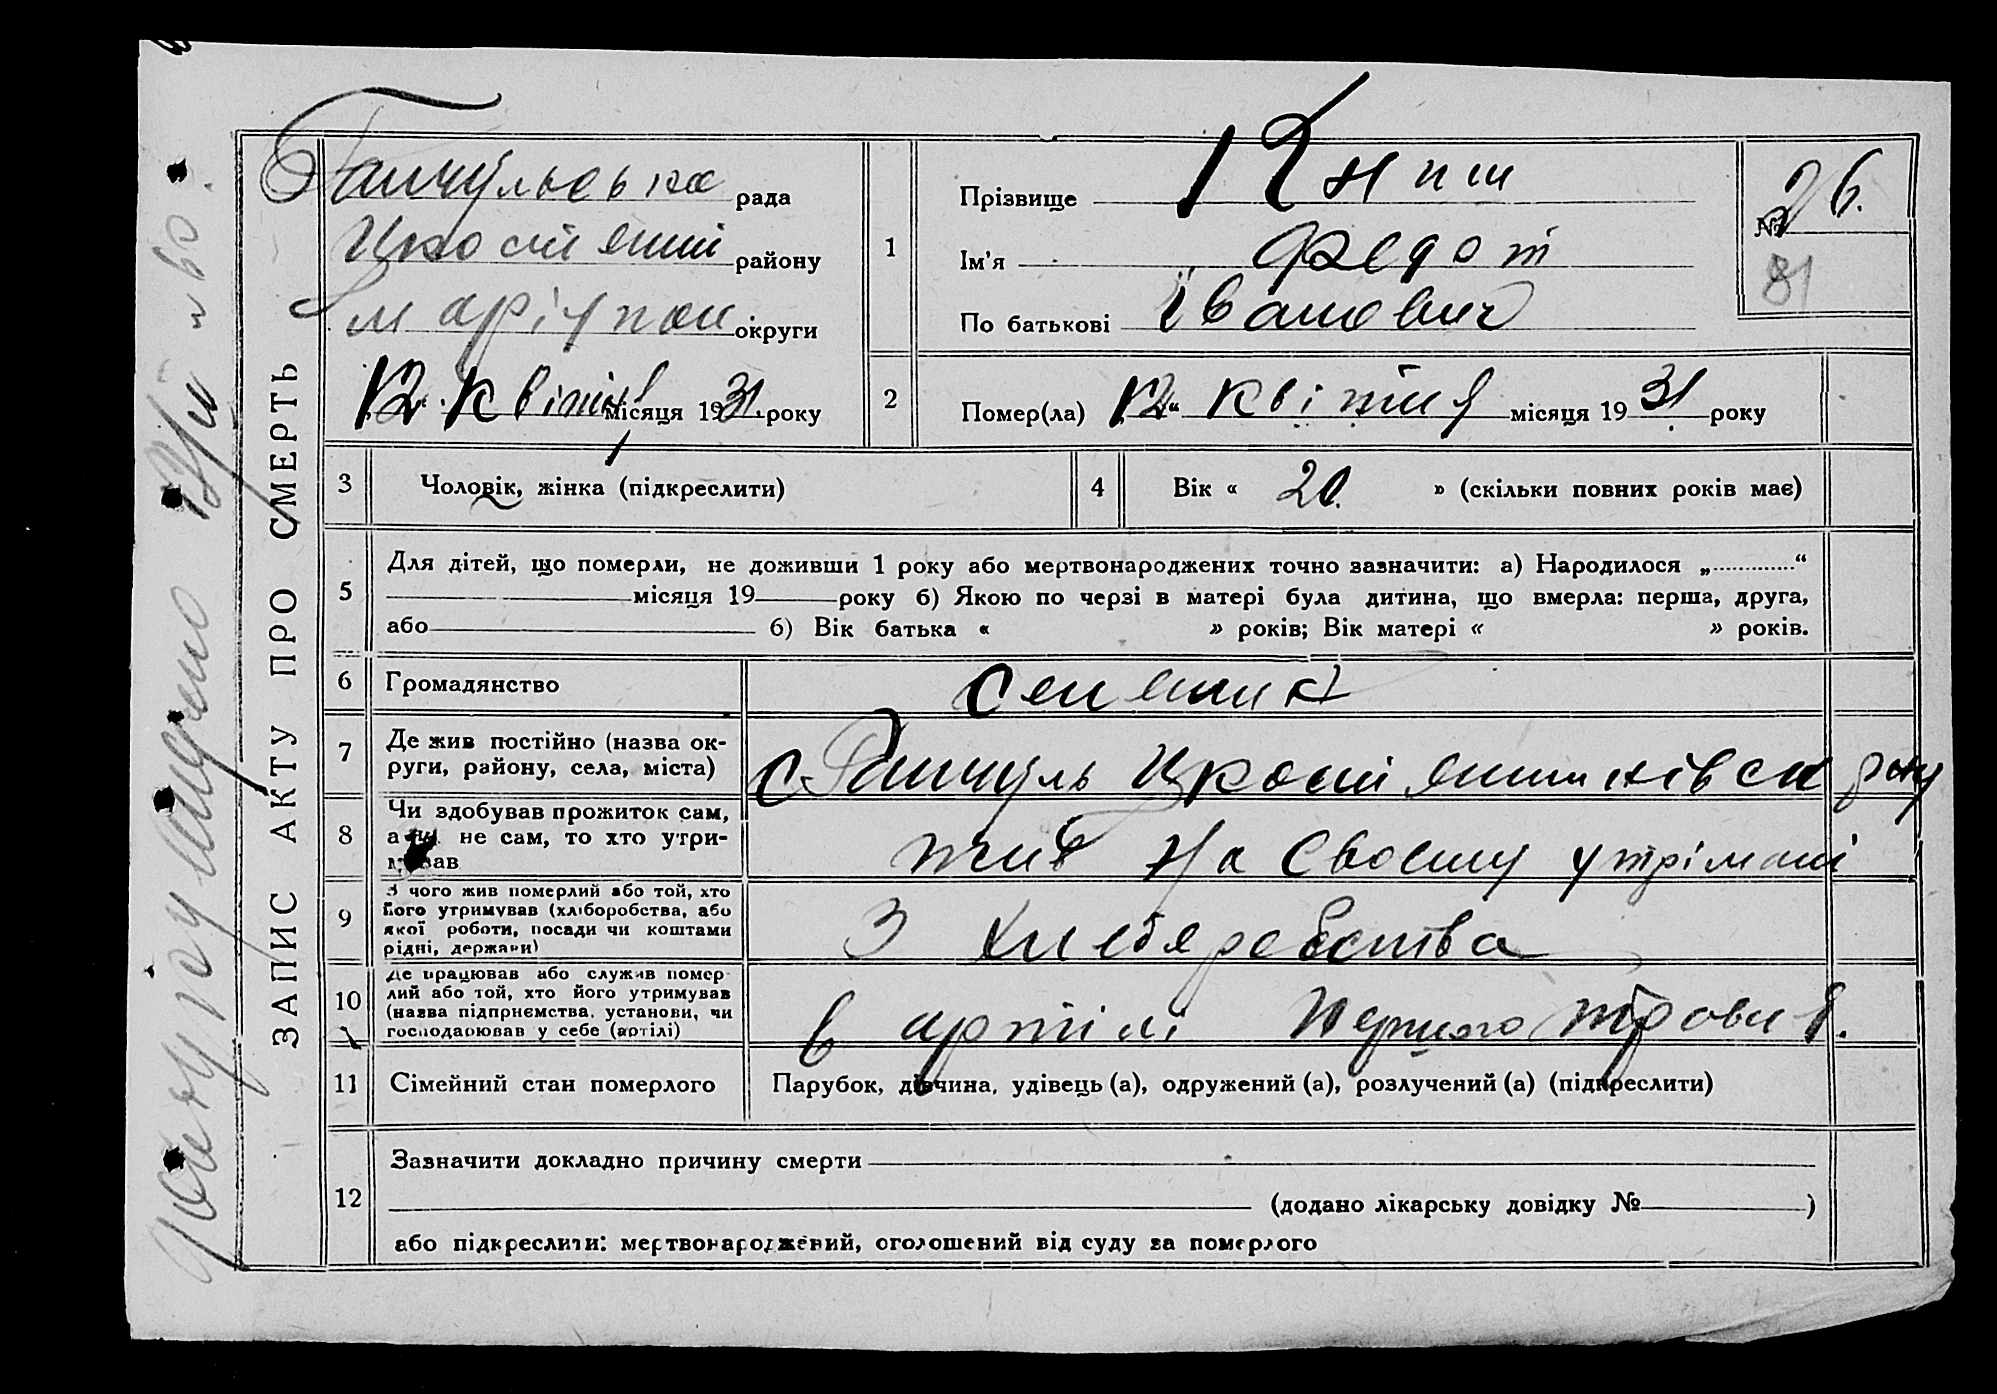 ЗАПИС АКТУ ПРО СМЕРТЬ
рада
району
округи
12 квітня місяця 1931 року
1
Прізвище Книш
Ім'я Федот
По батькові Іванович
№ 26.
81
2
Помер(ла) 12 “ квітня місяця 1931 року
3 Чоловік, жінка (підкреслити)
4 Вік « 20. » (скільки повних років має)
5
Для дітей, що померли, не доживши 1 року або мертвонароджених точно зазначити: а) Народилося „ “
місяця 19 року б) Якою по черзі в матері була дитина, що вмерла: перша, друга,
або б) Вік батька « » років; Вік матері « » років.
6 Громадянство
7 Де жив постійно (назва ок-
руги, району, села, міста)
8 Чи здобував прожиток сам,
а не сам, то хто утри-
жив на своєму
9 З чого жив померлий або той, хто
його утримував (хліборобства, або
якої роботи, посади чи коштами
рідні, держави)
З
10 Де працював або служив помер-
лий або той, хто його утримував
(назва підприємства, установи, чи
господарював у себе (артілі)
в артілі Першого травня.
11 Сімейний стан померлого
Парубок, дівчина, удівець (а), одружений (а), розлучений (а) (підкреслити)
12
Зазначити докладно причину смерти
(додано лікарську довідку № )
або підкреслити: мертвонароджений, оголошений від суду за померлого